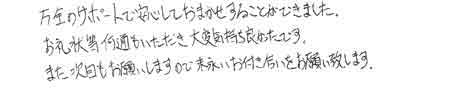 万全のサポートで安心しておまかせすることができました。
お礼状等何通もいただき大変気持ち良かったです。
また次回もお願いしますので末永いお付き合いをお願い致します。